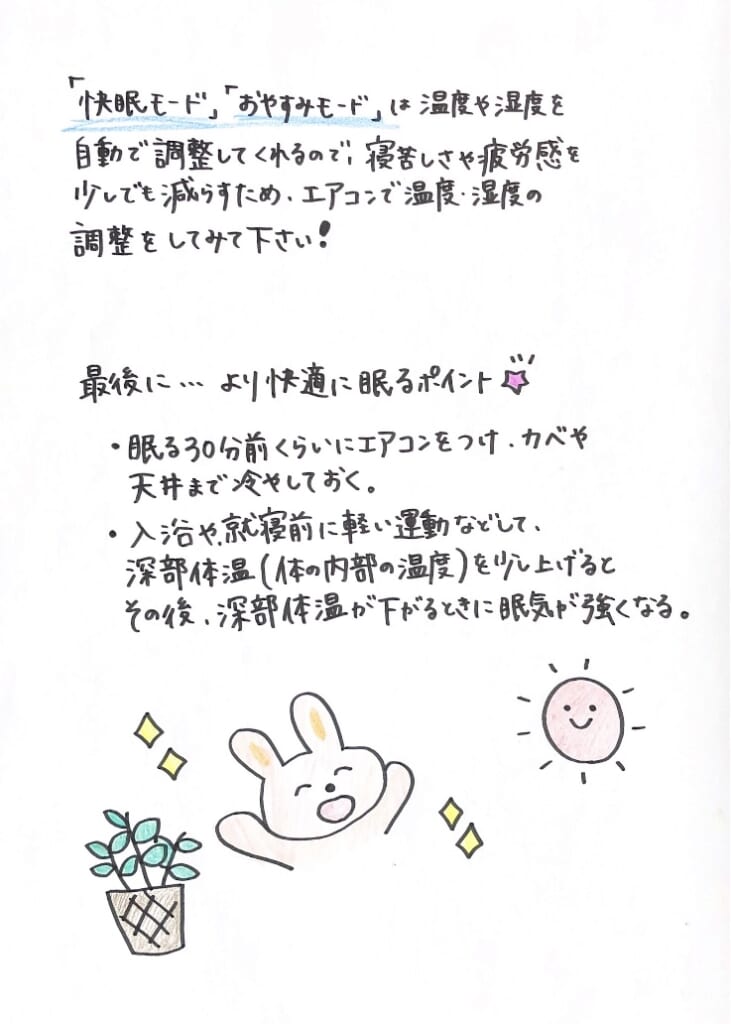 「快眠モード」「おやすみモード」は温度や湿度を
自動で調整してくれるので、寝苦しさや疲労感を
少しでも減らすため、エアコンで温度・湿度の
調整をしてみて下さい!
最後に… より快適に眠るポイント
・眠る30分前くらいにエアコンをつけ、カベや
天井まで冷やしておく。
・入浴や、就寝前に軽い運動などして、
深部体温(体の内部の温度)を少し上げると
その後、深部体温が下がるときに眠気が強くなる。